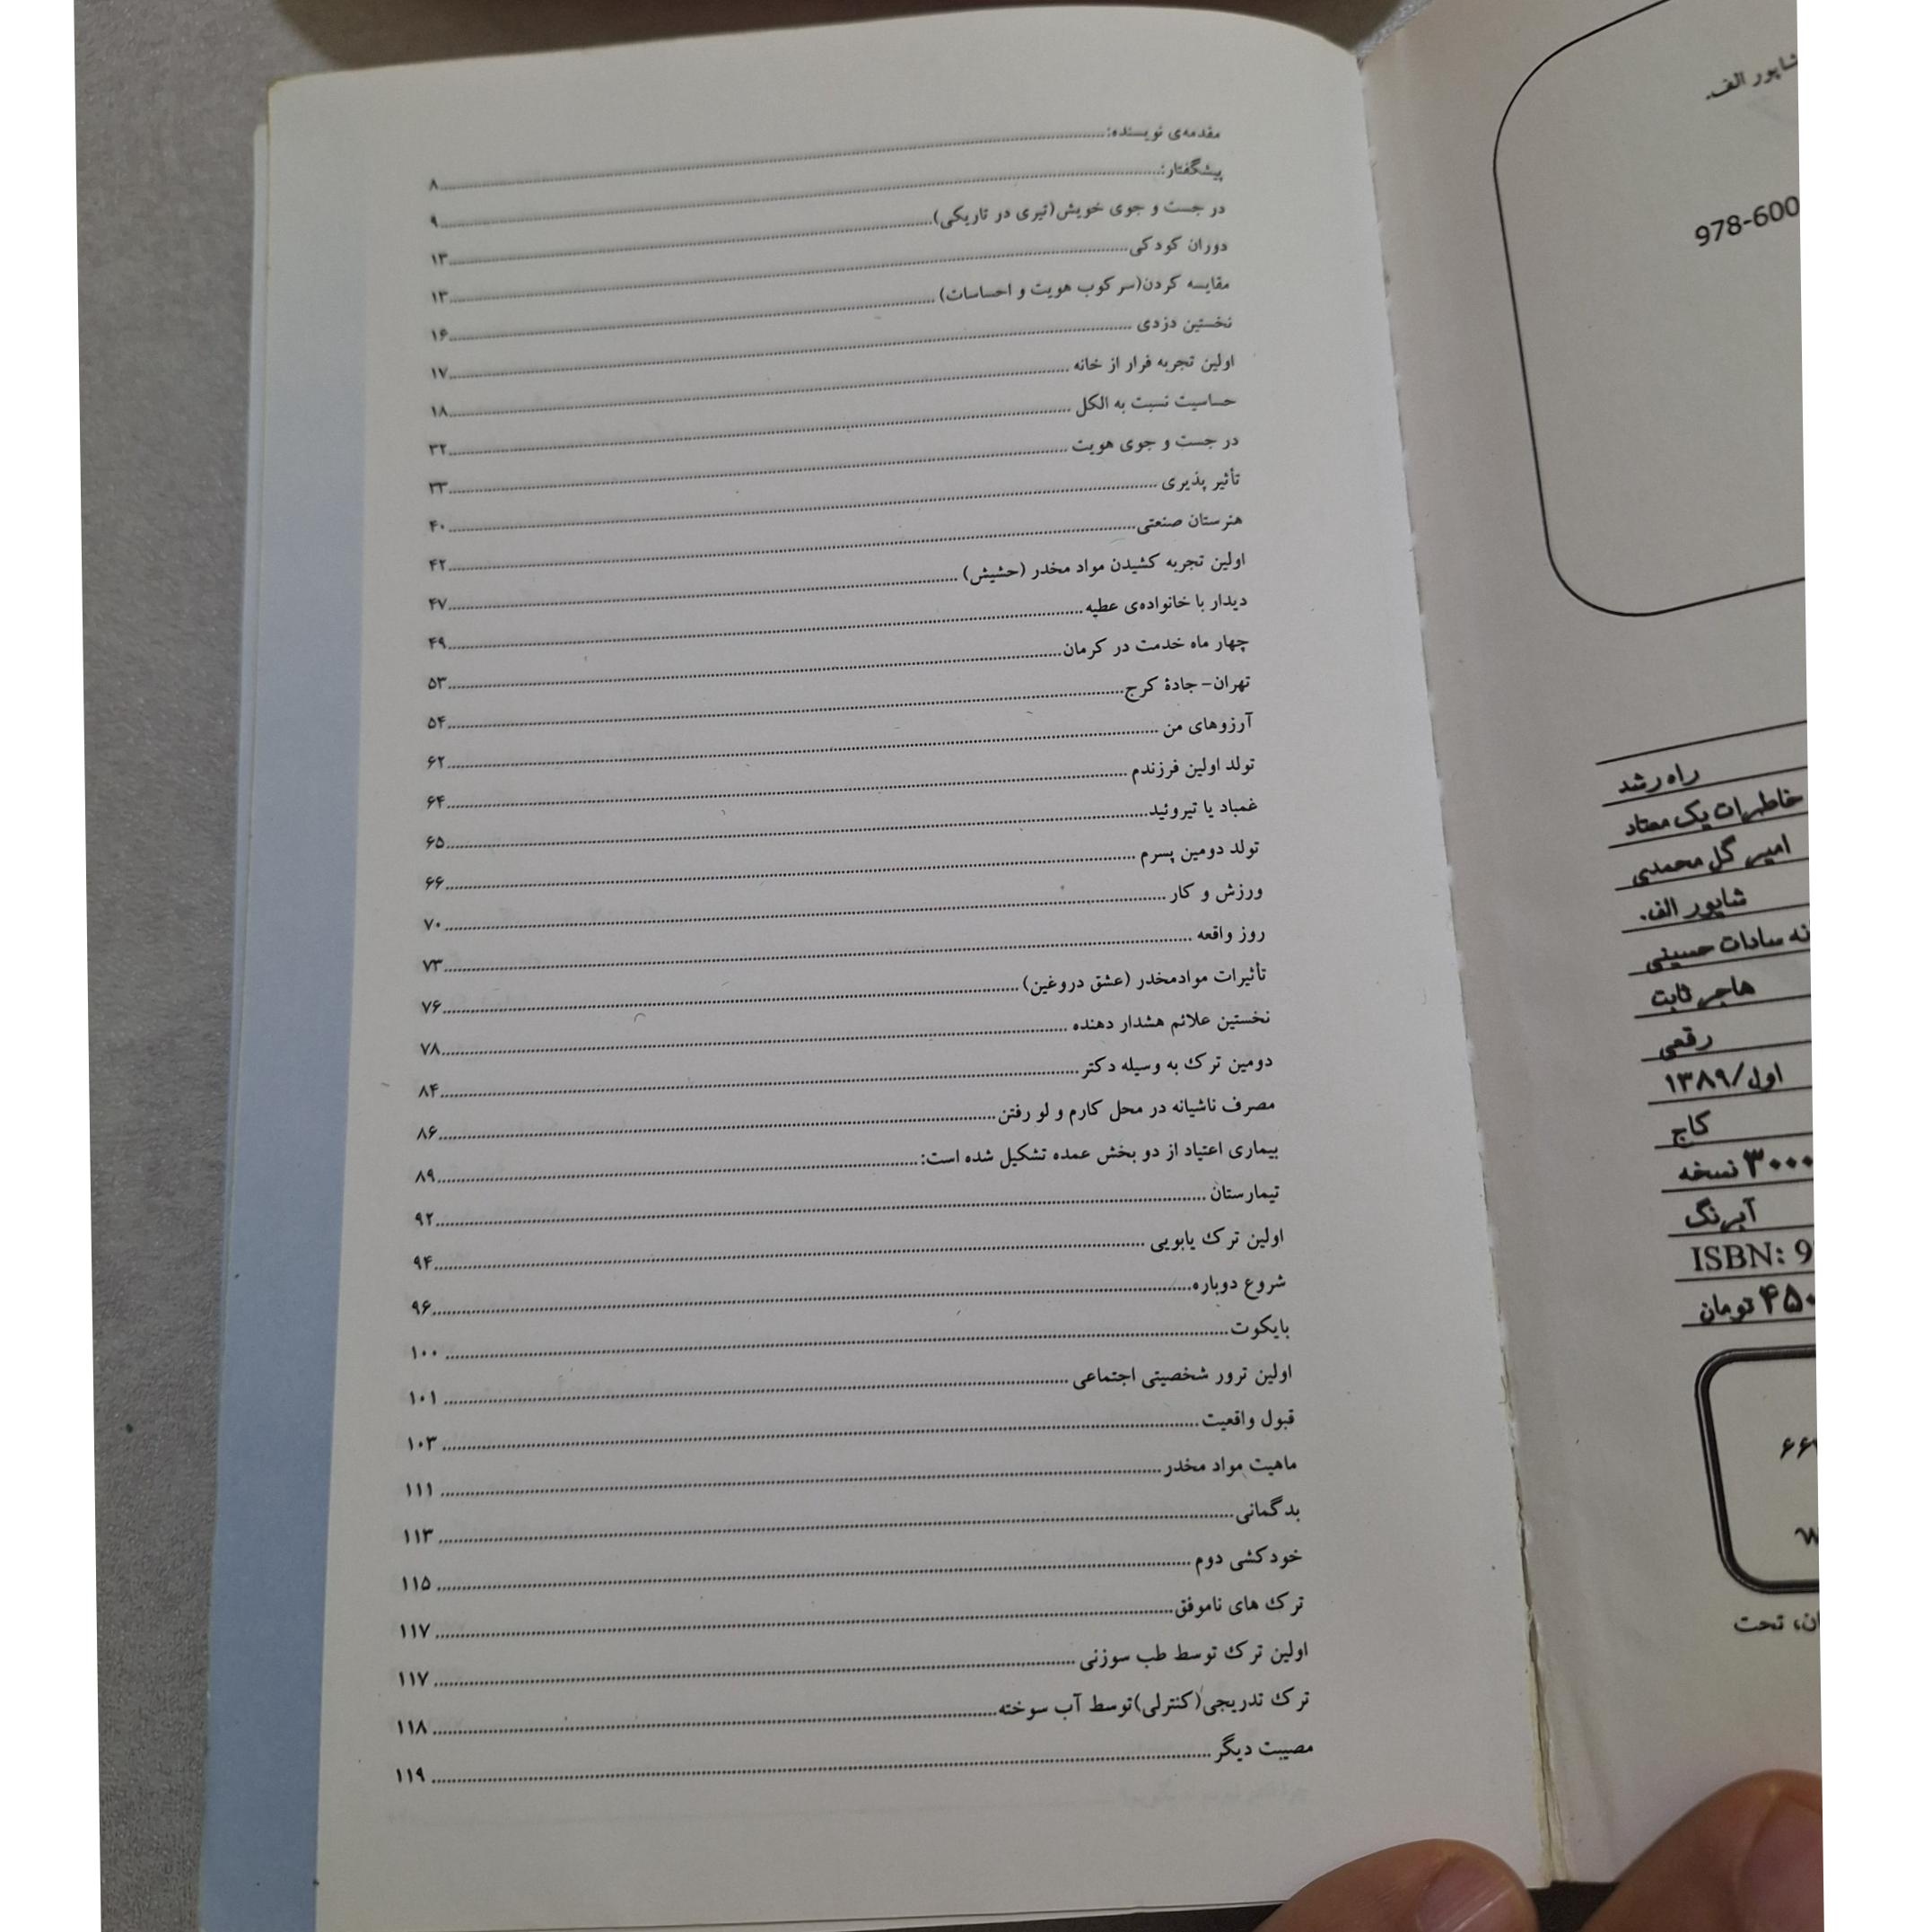 شاپور الف.
978-600
راه رشد
خاطرات یک معتاد
امیر گل محمدی
شاپور الف.
سادات حسینی
هاجر ثابت
رقعی
اول/۱۳۸۹
کاج
۳۰۰۰ نسخه
آبرنگ
ISBN: 9
تومان
تحت
مقدمه‌ی نویسنده: ۸
پیشگفتار: ۹
در جست و جوی خویش(تیری در تاریکی) ۱۳
دوران کودکی ۱۳
مقایسه کردن(سرکوب هویت و احساسات) ۱۶
نخستین دزدی ۱۷
اولین تجربه فرار از خانه ۱۸
حساسیت نسبت به الکل ۳۲
در جست و جوی هویت ۳۳
تأثیر پذیری ۴۰
هنرستان صنعتی ۴۲
اولین تجربه کشیدن مواد مخدر (حشیش) ۴۷
دیدار با خانواده‌ی عطیه ۴۹
چهار ماه خدمت در کرمان ۵۳
تهران- جادهٔ کرج ۵۴
آرزوهای من ۶۲
تولد اولین فرزندم ۶۴
غمباد یا تیروئید ۶۵
تولد دومین پسرم ۶۶
ورزش و کار ۷۰
روز واقعه ۷۳
تأثیرات موادمخدر (عشق دروغین) ۷۶
نخستین علائم هشدار دهنده ۷۸
دومین ترک به وسیله دکتر ۸۴
مصرف ناشیانه در محل کارم و لو رفتن ۸۶
بیماری اعتیاد از دو بخش عمده تشکیل شده است: ۸۹
تیمارستان ۹۲
اولین ترک یابویی ۹۴
شروع دوباره ۹۶
بایکوت ۱۰۰
اولین ترور شخصیتی اجتماعی ۱۰۱
قبول واقعیت ۱۰۳
ماهیت مواد مخدر ۱۱۱
بدگمانی ۱۱۳
خودکشی دوم ۱۱۵
ترک های ناموفق ۱۱۷
اولین ترک توسط طب سوزنی ۱۱۷
ترک تدریجی(کنترلی)توسط آب سوخته ۱۱۸
مصیبت دیگر ۱۱۹